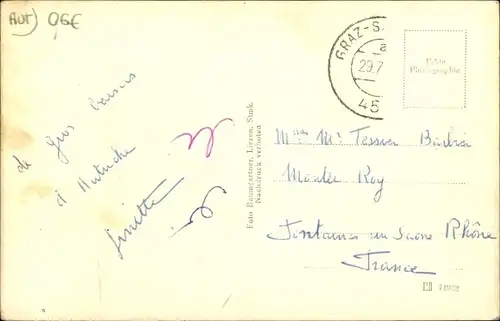 AUT) 0,6€
GRAZ-S
a
29.7
45
Echte
Photographie
de Gros baisers
d'Autriche
Ginette
Foto Baumgartner, Liezen, Stmk.
Nachdruck verboten
Mme Mr Tessier
Montée Roy
Fontaines sur Saône Rhône
France